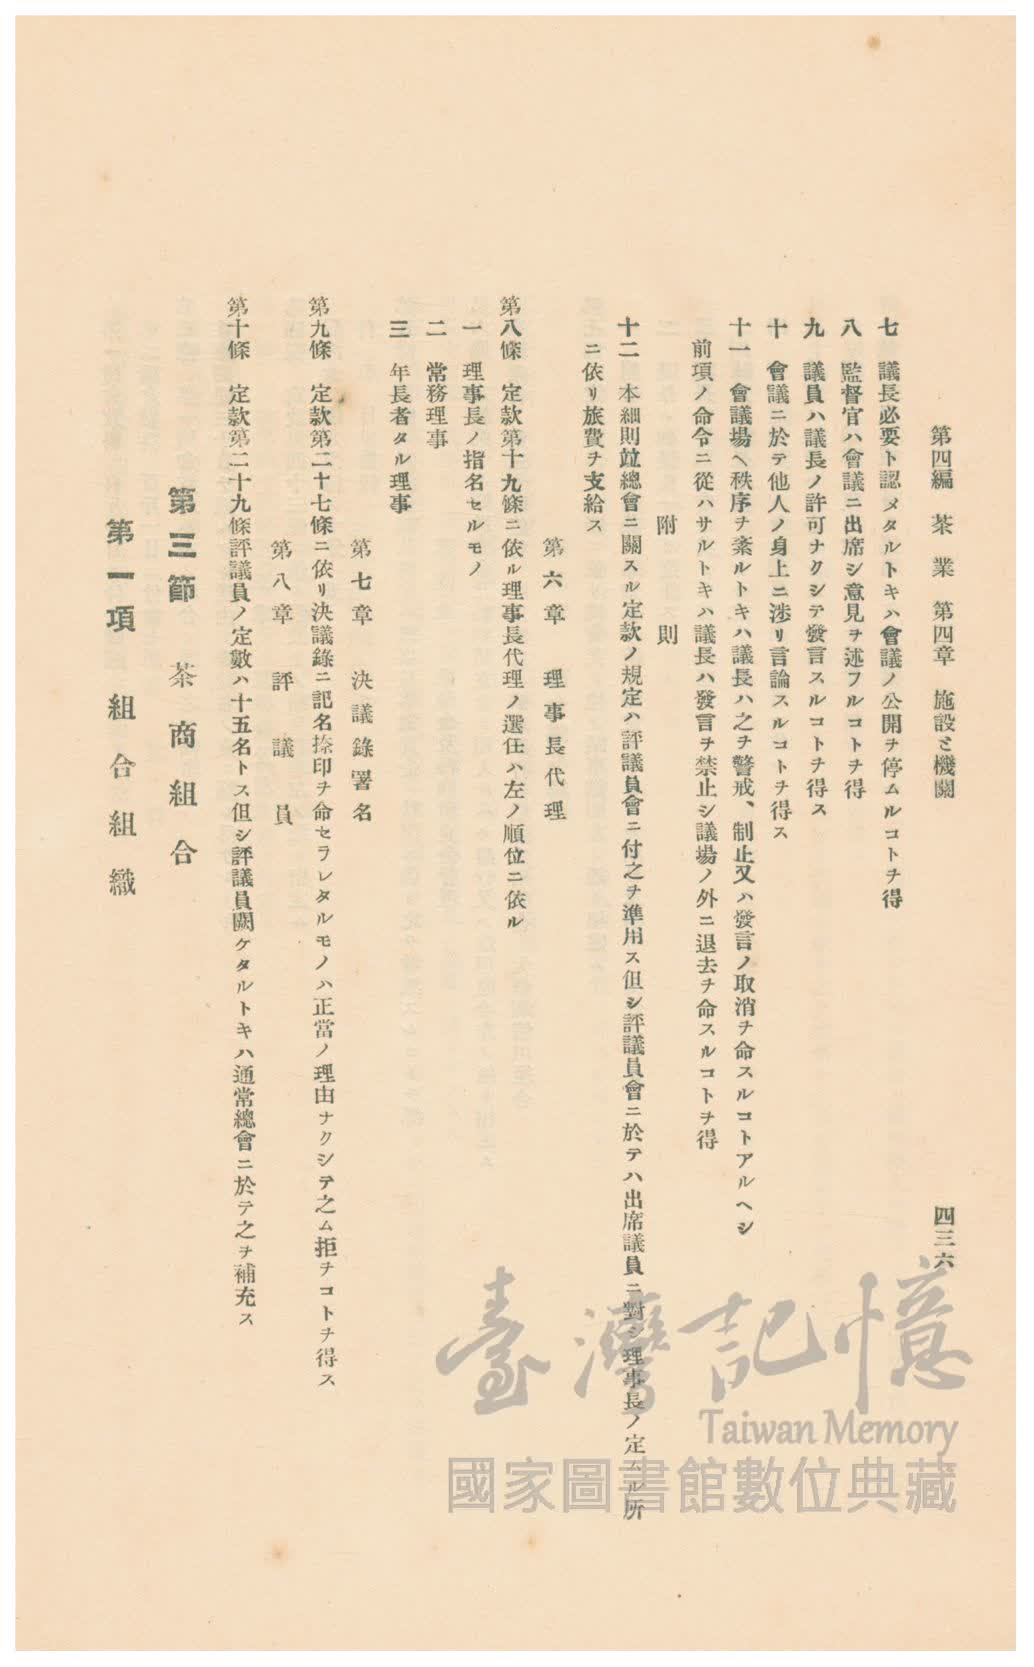 第四編 茶業 第四章 施設と機關
四三六
七 議長必要ト認メタルトキハ會議ノ公開ヲ停ムルコトヲ得
八 監督官ハ會議ニ出席シ意見ヲ述フルコトヲ得
九 議員ハ議長ノ許可ナクシテ發言スルコトヲ得ス
十 會議ニ於テ他人ノ身上ニ涉リ言論スルコトヲ得ス
十一 會議場ヘ秩序ヲ紊ルトキハ議長ハ之ヲ警戒、制止又ハ發言ノ取消ヲ命スルコトアルヘシ
前項ノ命令ニ從ハサルトキハ議長ハ發言ヲ禁止シ議場ノ外ニ退去ヲ命スルコトヲ得
附則
十二 本細則竝總會ニ關スル定款ノ規定ハ評議員會ニ付之ヲ準用ス但シ評議員會ニ於テハ出席議員ニ對シ理事長ノ定ムル所
ニ依リ旅費ヲ支給ス
第六章 理事長代理
第八條 定款第十九條ニ依ル理事長代理ノ選任ハ左ノ順位ニ依ル
一 理事長ノ指名セルモノ
二 常務理事
三 年長者タル理事
第七章 決議錄署名
第九條 定款第二十七條ニ依リ決議錄ニ記名捺印ヲ命セラレタルモノハ正當ノ理由ナクシテ之ム拒ヲコトヲ得ス
第八章 評議員
第十條 定款第二十九條評議員ノ定數ハ十五名トス但シ評議員闕ケタルトキハ通常總會ニ於テ之ヲ補充ス
第三節 茶商組合
第一項 組合組織
臺灣記憶
Taiwan Memory
國家圖書館數位典藏